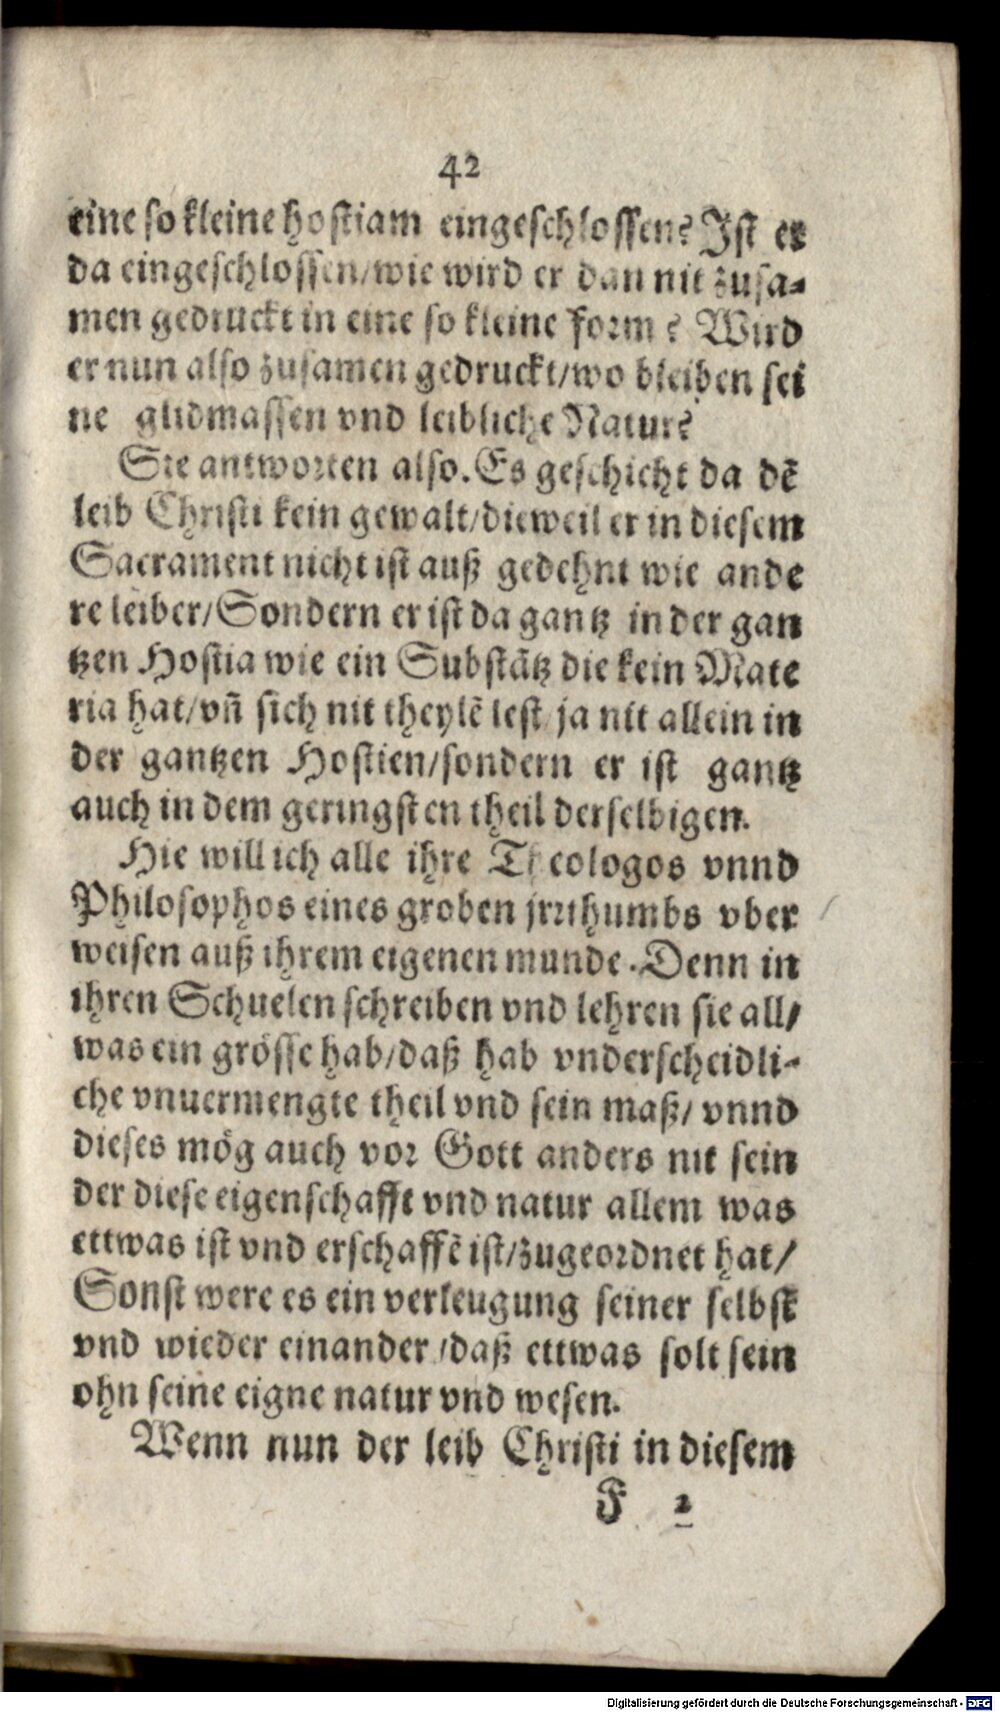 42
eine so kleine hostiam eingeschlossen? Ist er
da eingeschlossen/wie wird er dan nit zusa-
men gedruckt in eine so kleine form? Wird
er nun also zusamen gedruckt/wo bleiben sei
ne glidmassen vnd leibliche Natur?
Sie antworten also. Es geschicht da dẽ
leib Christi kein gewalt/dieweil er in diesem
Sacrament nicht ist auß gedehnt wie ande
re leiber/Sondern er ist da gantz in der gan
tzen Hostia wie ein Substãtz die kein Mate
ria hat/vñ sich nit theylẽ lest/ja nit allein in
der gantzen Hostien/sondern er ist gantz
auch in dem geringsten theil derselbigen.
Hie will ich alle ihre Theologos vnnd
Philosophos eines groben jrrthumbs vber
weisen auß ihrem eigenen munde. Denn in
ihren Schuelen schreiben vnd lehren sie all/
was ein grösse hab/daß hab vnderscheidli-
che vnuermengte theil vnd sein maß/ vnnd
dieses mög auch vor Gott anders nit sein
der diese eigenschafft vnd natur allem was
ettwas ist vnd erschaffẽ ist/zugeordnet hat/
Sonst were es ein verleugung seiner selbst
vnd wieder einander/daß ettwas solt sein
ohn seine eigne natur vnd wesen.
Wenn nun der leib Christi in diesem
F 2
Digitalisierung gefördert durch die Deutsche Forschungsgemeinschaft - DFG